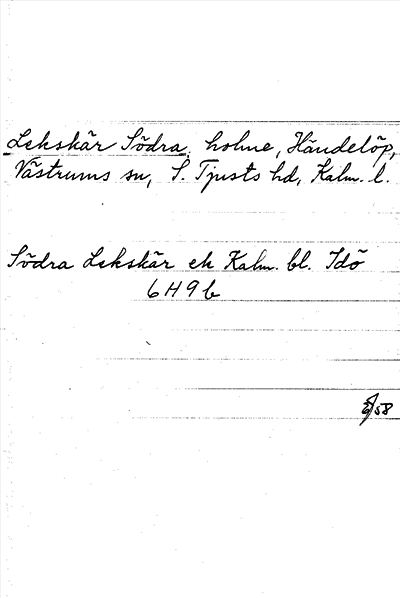 Lekskär Södra, holme, Händelöp,
Västrums sn, S. Tjusts hd, Kalm. l.
Södra Lekskär ek Kalm. bl. Idö
6H9b
58